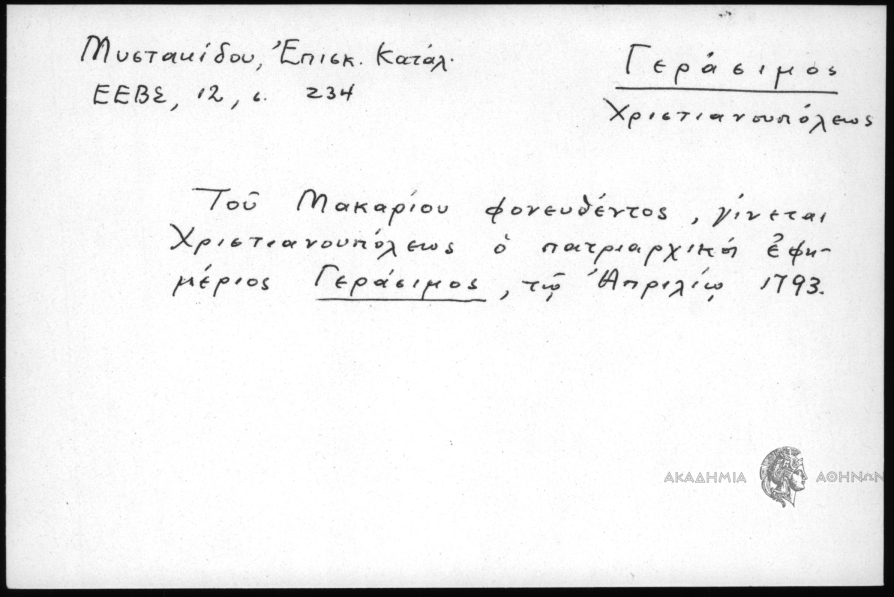 Μυστακίδου, Ἐπισκ. Κατάλ.
ΕΕΒΣ, 12, σ. 234
Γεράσιμος
Χριστιανουπόλεως
Τοῦ Μακαρίου φονευθέντος, γίνεται
Χριστιανουπόλεως ὁ πατριαρχικός ἐφη-
μέριος Γεράσιμος, τῷ Ἀπριλίῳ 1793.
ΑΚΑΔΗΜΙΑ ΑΘΗΝΩΝ